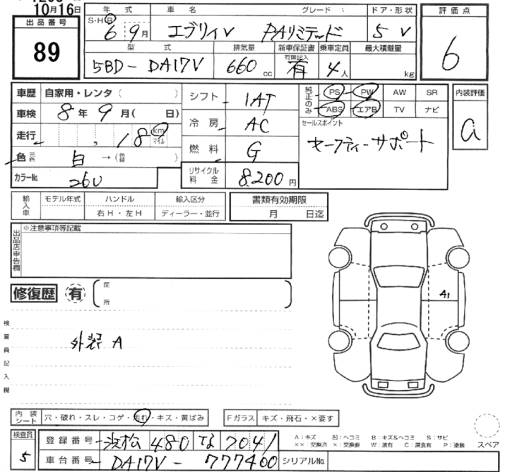 10月16日
出品番号
89
年式 車名 グレード ドア・形状
S・H・R 6年9月 エブリィV PAリミテッド 5 V
型式 排気量 新車保証書 乗車定員 最大積載量
5BD-DA17V 660cc 有 4人 kg
評価点
6
車歴 自家用・レンタ( )
車検 8年9月( 日)
走行 18 km マイル
色 元色 白 →(色替 )
カラーNo. 26U
シフト IAT
冷房 AC
燃料 G
リサイクル料金 8,200円
純正のみ PS PW AW SR
ABS エアB TV ナビ
セールスポイント
セーフティーサポート
内装評価
a
輸入車 モデル年式 ハンドル 輸入区分
右H・左H ディーラー・並行
書類有効期限
月 日迄
出品店申告欄
※注意事項等記載
修復歴 有 箇所
検査員記入欄
外装 A
A1
内装シート 穴・破れ・スレ・コゲ・汚れ・キズ・黄ばみ
Fガラス キズ・飛石・×要す
検査員
5
登録番号 浜松 480 な 2041
車台番号 DA17V-777400 シリアルNo.
A:キズ U:ヘコミ B:キズ&ヘコミ S:サビ
××:交換済 ×:交換要 W:波有 C:腐食有 P:塗装
スペア